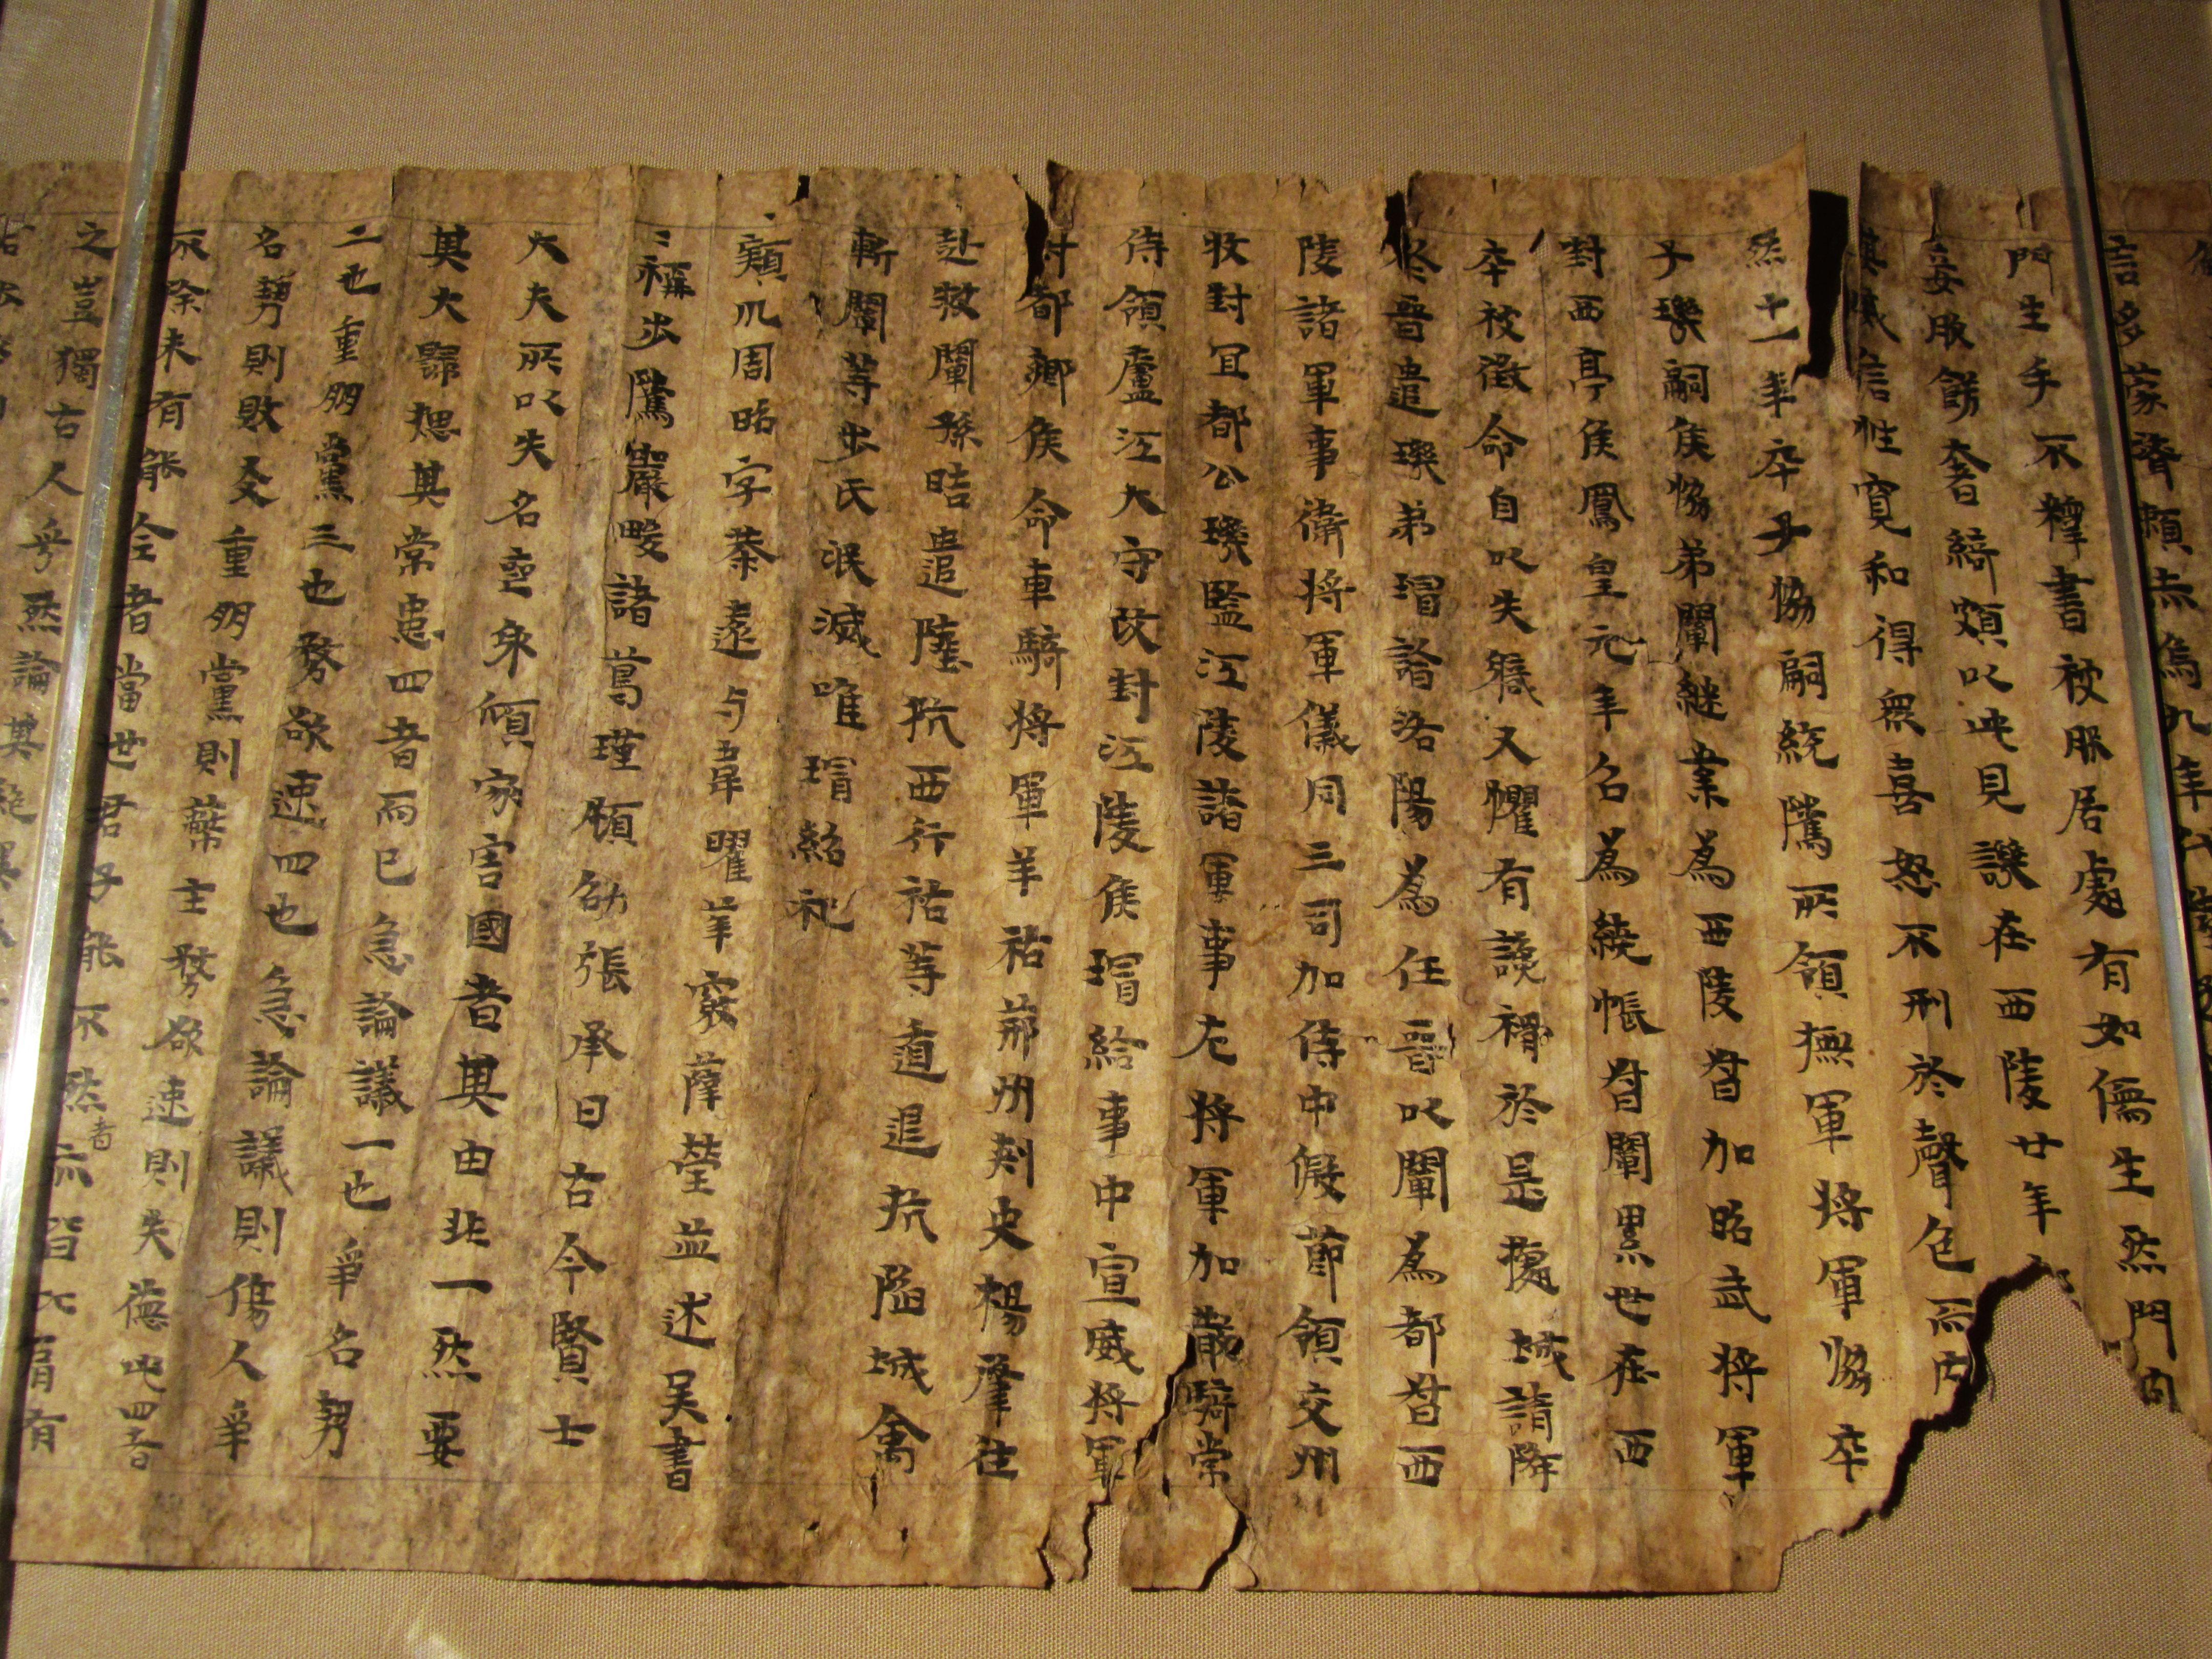 言多蒙濟賴赤烏九年代陸
門生手不釋書被服居處有如儒生然門內
妻妾服飾奢綺頗以此見譏在西陵廿年
其威信性寬和得眾喜怒不形於聲色而內
然十一年卒子協嗣統隲所領撫軍將軍協卒
子璣嗣侯協弟闡継業為西陵督加昭武將軍
封西亭侯鳳皇元年召為繞帳督闡累世在西
卒被徵命自以失職又懼有讒禍於是據城請降
於晉遣璣弟瑁詣洛陽為任晉以闡為都督西
陵諸軍事衛將軍儀同三司加侍中假節領交州
牧封宜都公璣監江陵諸軍事左將軍加散騎常
侍領廬江太守改封江陵侯瑁給事中宣威將軍
封都鄉侯命車騎將軍羊祜荊州刾史楊肇往
赴救闡孫晧遣陸抗西行祜等遁退抗陷城禽
斬闡等步氏泯滅唯瑁紹祀
潁川周昭字恭遠与韋曜華覈薛瑩並述吳書
稱步隲嚴畯諸葛瑾顧劭張承曰古今賢士
大夫所以失名喪身傾家害國者其由非一然要
其大歸揔其常患四者而已急論議一也爭名勢
二也重朋黨三也務欲速四也急論議則傷人爭
名勢則敗友重朋黨則蔽主務欲速則失德此四者
不除未有能全者當世君子能不然者亦皆比肩有
之豈獨古人乎然論其絕異